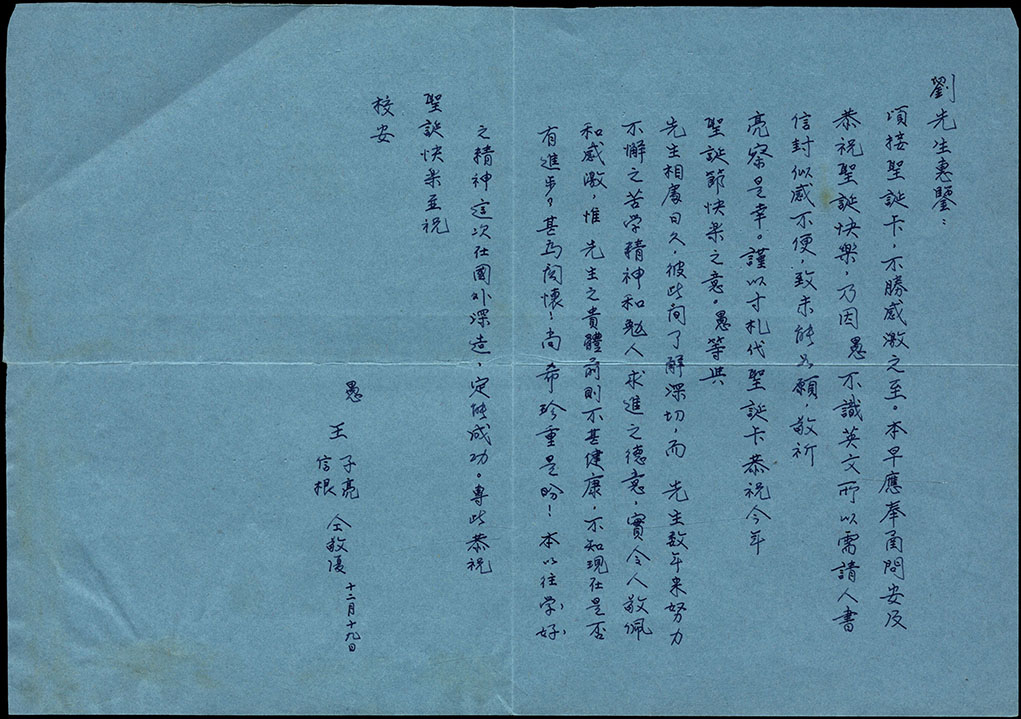 劉先生惠鑒：
頃接聖誕卡，不勝感激之至。本早應奉函問安及
恭祝聖誕快樂，乃因愚不識英文所以需請人書
信封似感不便，致未能如願，敬祈
亮察是幸。謹以寸札代聖誕卡恭祝今年
聖誕節快樂之意。愚等與
先生相處日久，彼此间了解深切，而 先生数年来努力
不懈之苦学精神和勉人求進之德意，實令人敬佩
和感激，惟 先生之貴體前則不甚健康，不知現在是否
有進步？甚為阂懷！尚希珍重是盼！本以往学好
之精神這次在國外深造，定能成功。專此恭祝
聖誕快樂並祝
校安
愚
王子亮
信根
仝敬復
十二月十九日